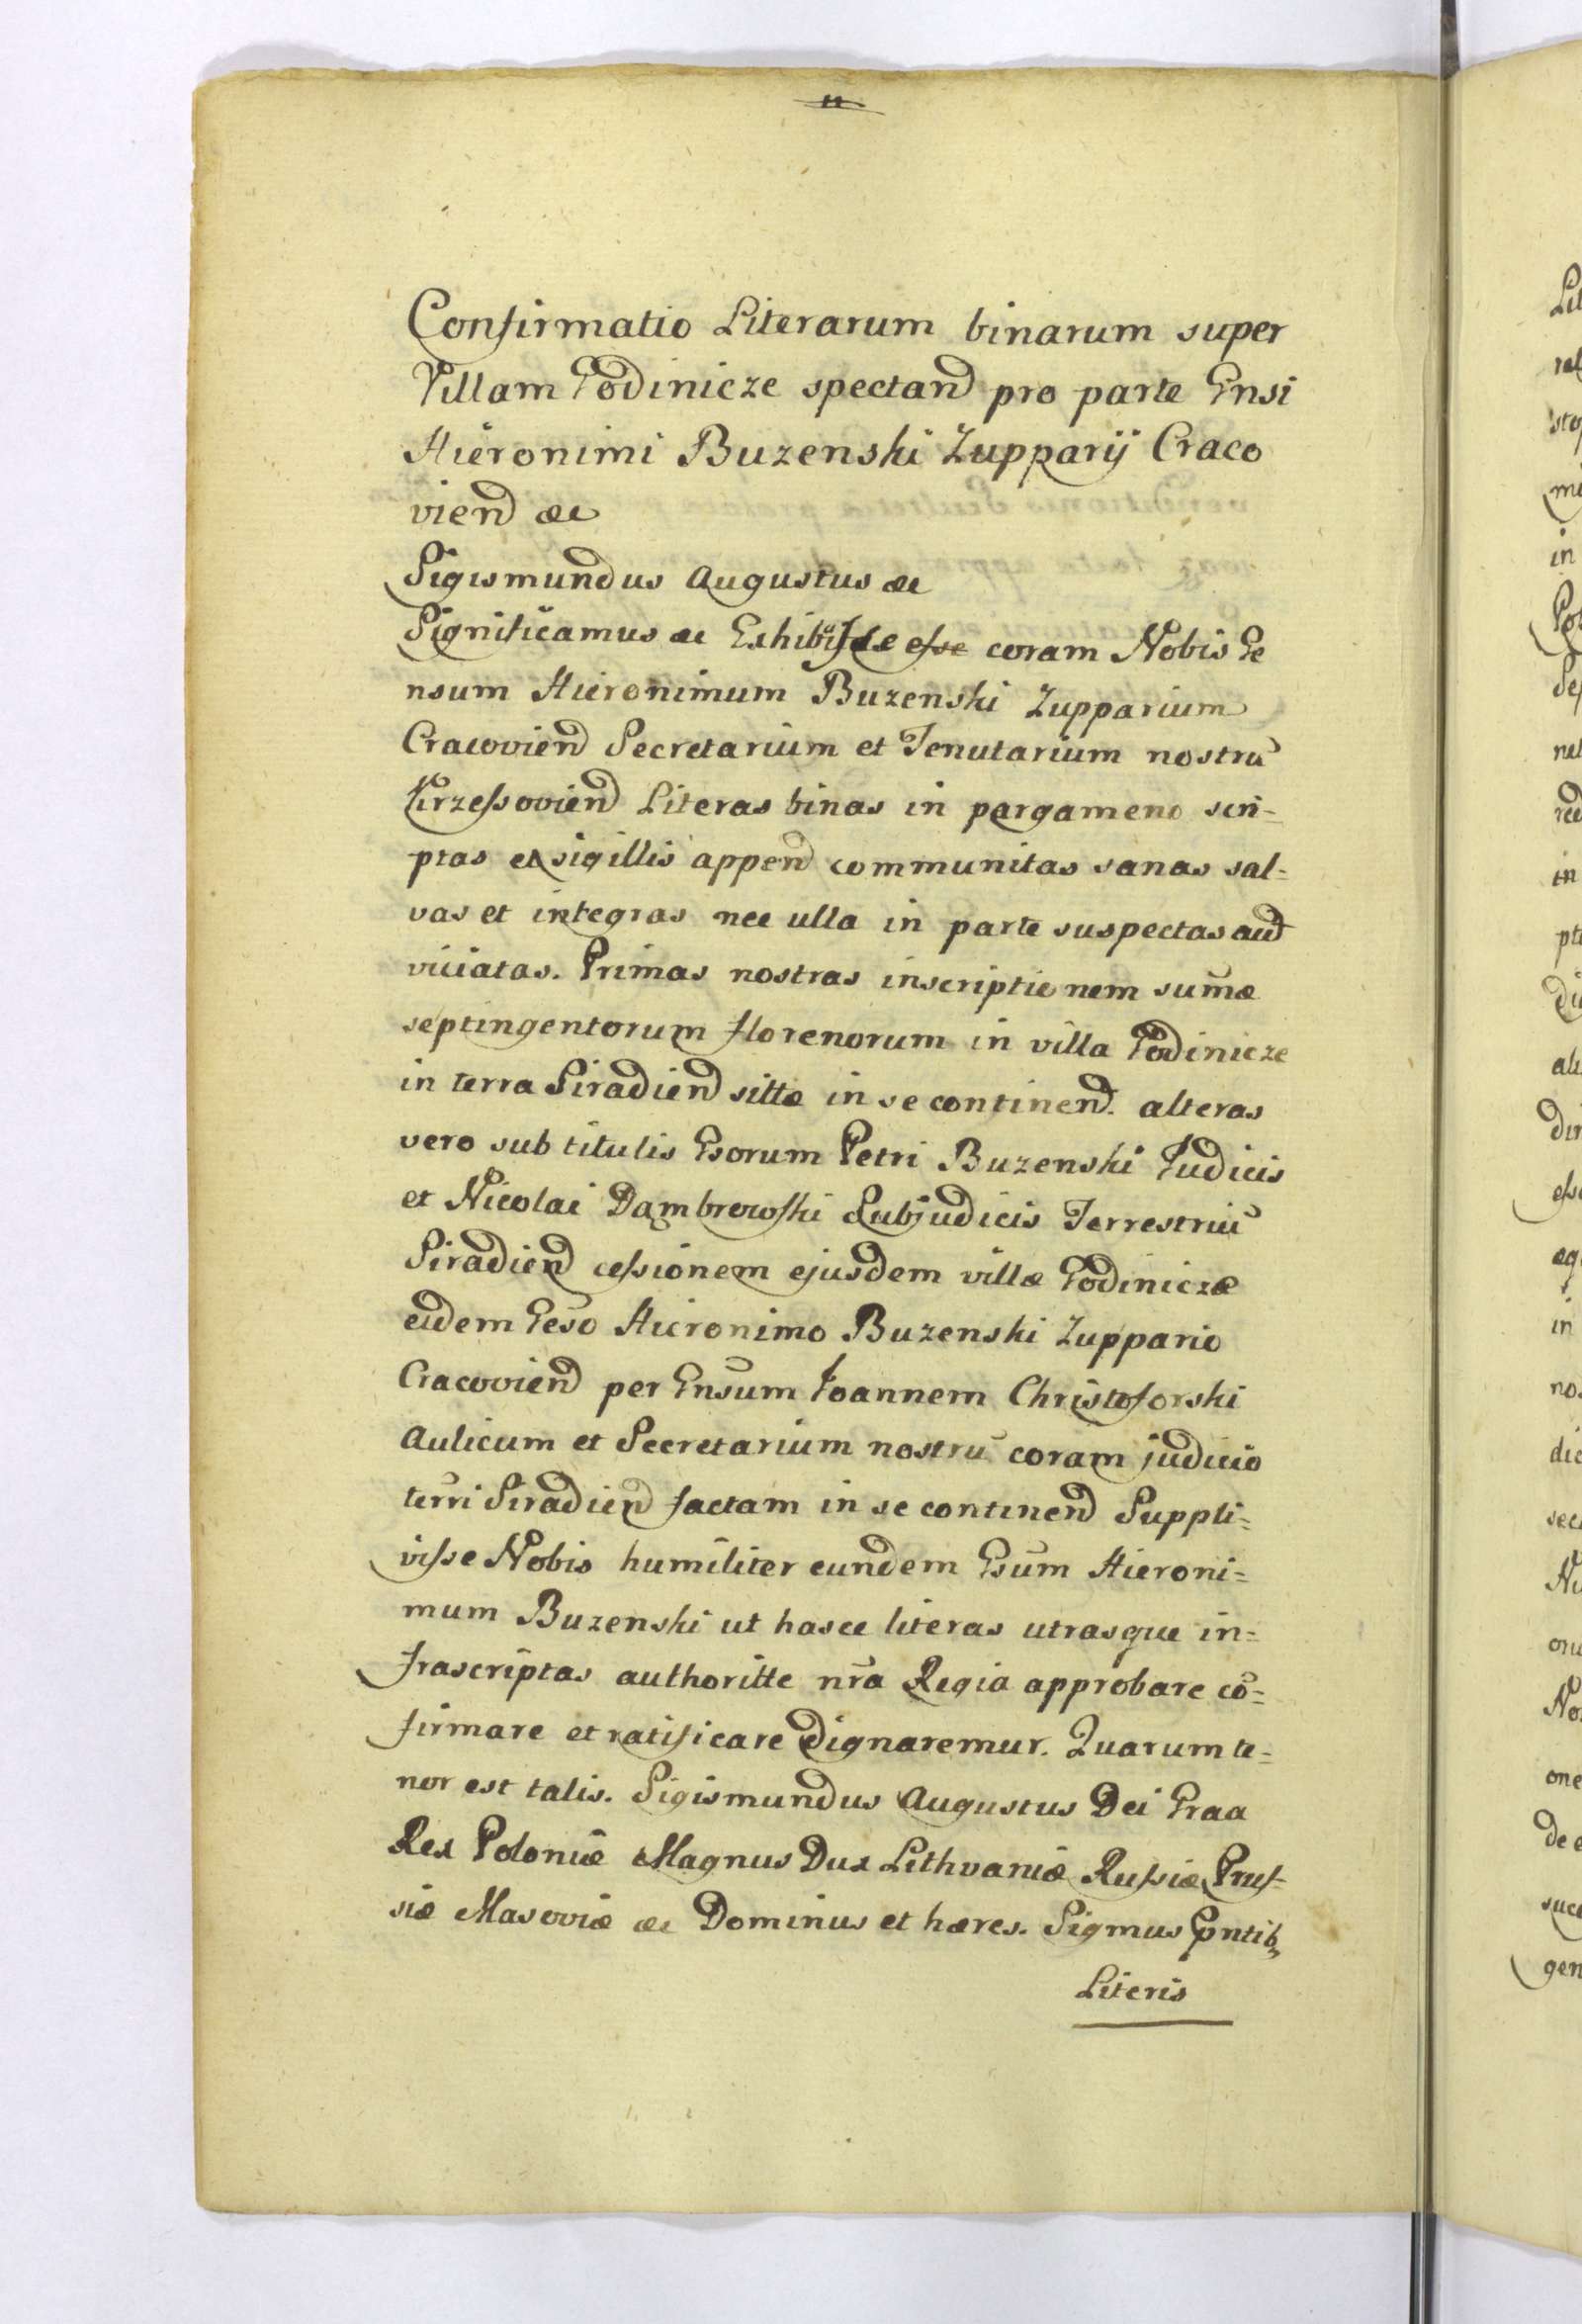 11
Confirmatio Literarum binarum super
Villam Godinicze spectand pro parte Gnsi
Hieronimi Buzenski Zupparij Craco
viend &c
Sigismundus Augustus &c
Significamus &c Exhibuisse esse coram Nobis Ge
nsum Hieronimum Buzenski Zupparium
Cracoviend Secretarium et Tenutarium nostrū
Krzessoviend Literas binas in pargameno scri-
ptas et sigillis append communitas sanas sal-
vas et integras nec ulla in parte suspectas aud
viciatas. Primas nostras inscriptionem sum̄æ
septingentorum florenorum in villa Godinicze
in terra Siradiend sittæ in se continend. alteras
vero sub titulis Gsorum Petri Buzenski Judicis
et Nicolai Dambrowski Subjudicis Terrestriū
Siradiend cessionem ejusdem villæ Godiniczæ
eidem Geso Hieronimo Buzenski Zuppario
Cracoviend per Gnsum Joannem Christoforski
Aulicum et Secretarium nostrū coram judicio
terri Siradiend factam in se continend Suppli=
visse Nobis humiliter eundem Gsum Hieroni=
mum Buzenski ut hasce literas utrasque in=
frascriptas authoritte nr̄a Regia approbare cō=
firmare et ratificare dignaremur. Quarum te=
nor est talis. Sigismundus Augustus Dei Graa
Rex Poloniæ Magnus Dux Lithvaniæ Russiæ Prus-
siæ Masoviæ &c Dominus et hæres. Sigmus Pntibꝫ
Literis